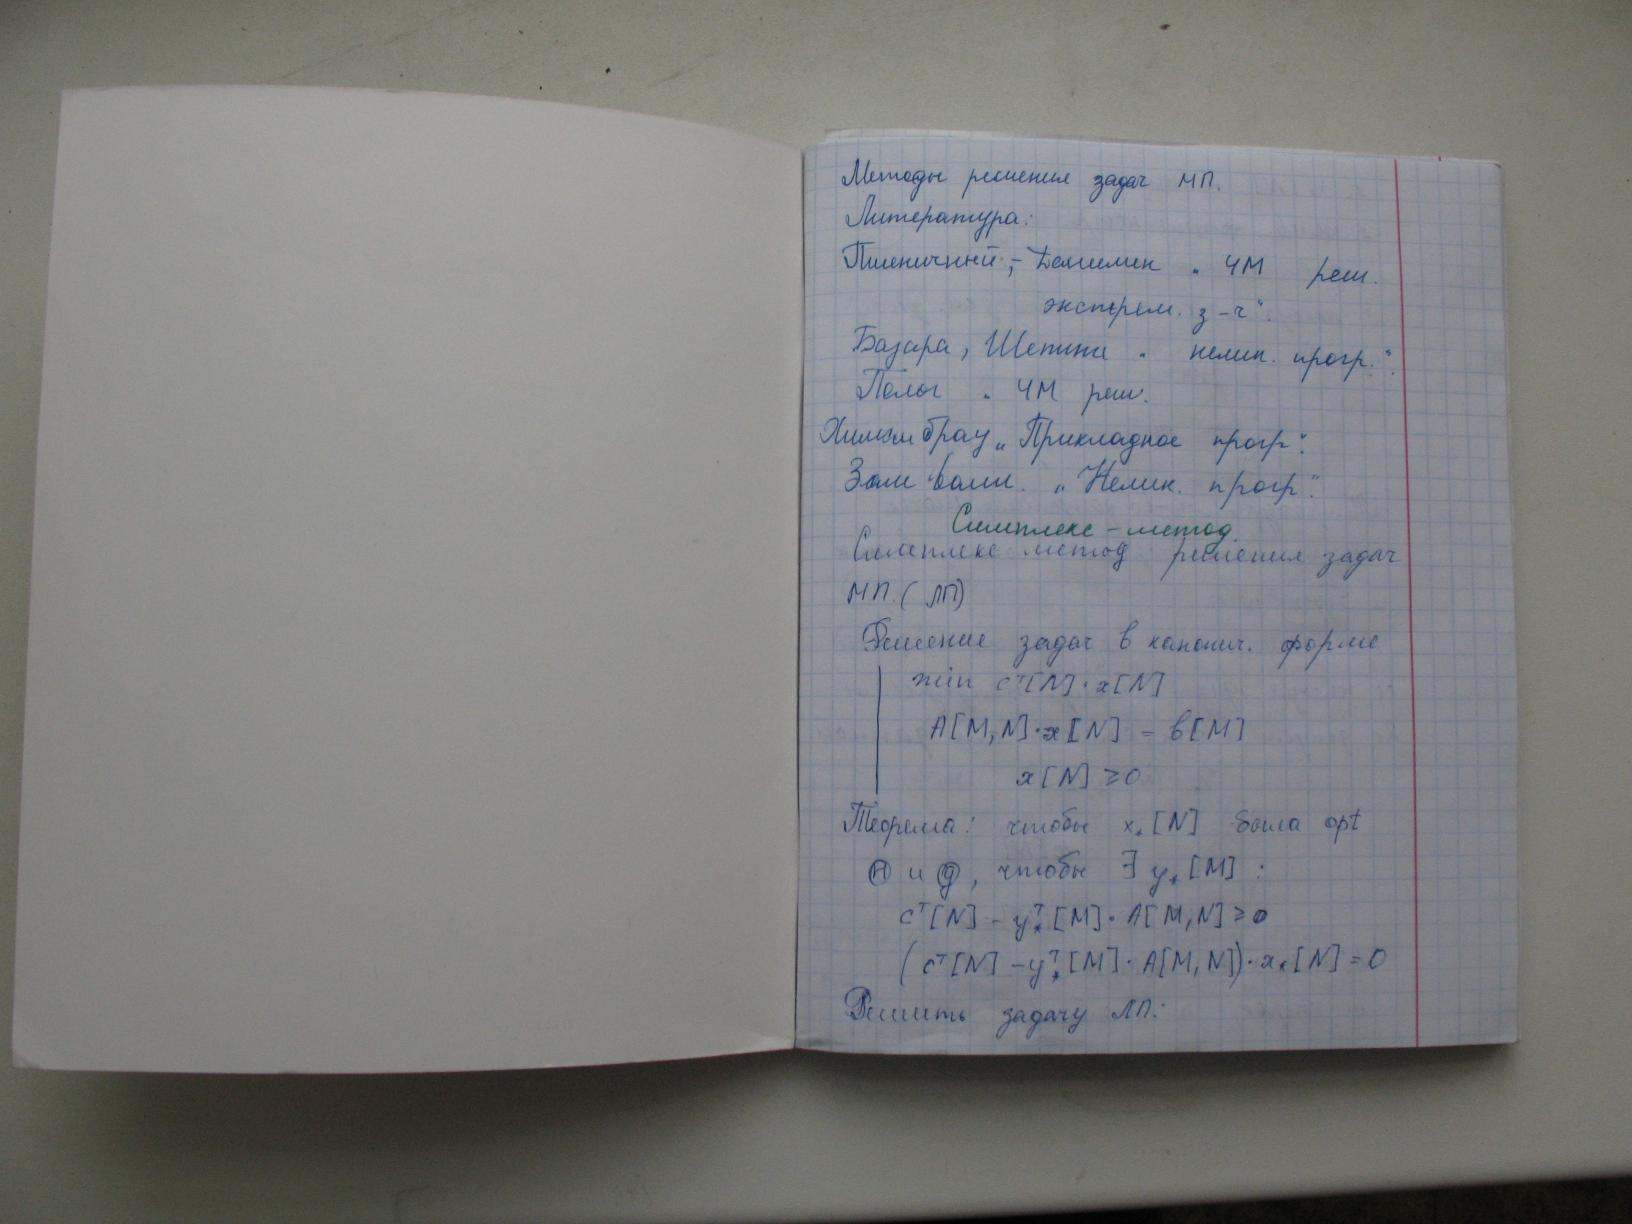 Методы решения задач МП.
Литература:
Пшеничный, - „ ЧМ реш.
экстрем. з-ч“.
Базара, Шетти „ нелин. прогр.“.
Полак „ ЧМ реш.
Химмельблау „Прикладное прогр“.
„Нелин. прогр“.
Симплекс-метод.
Симплекс метод решения задач
МП. (ЛП)
Решение задач в канонич. форме
min cᵀ[N]·x[N]
A[M,N]·x[N] = b[M]
x[N] ≥ 0
Теорема: чтобы x⁎[N] была opt
Ⓗ и Ⓓ, чтобы ∃ y⁎[M] :
cᵀ[N] - y⁎ᵀ[M]·A[M,N] ≥ 0
(cᵀ[N] - y⁎ᵀ[M]·A[M,N])·x⁎[N] = 0
Решить задачу ЛП: